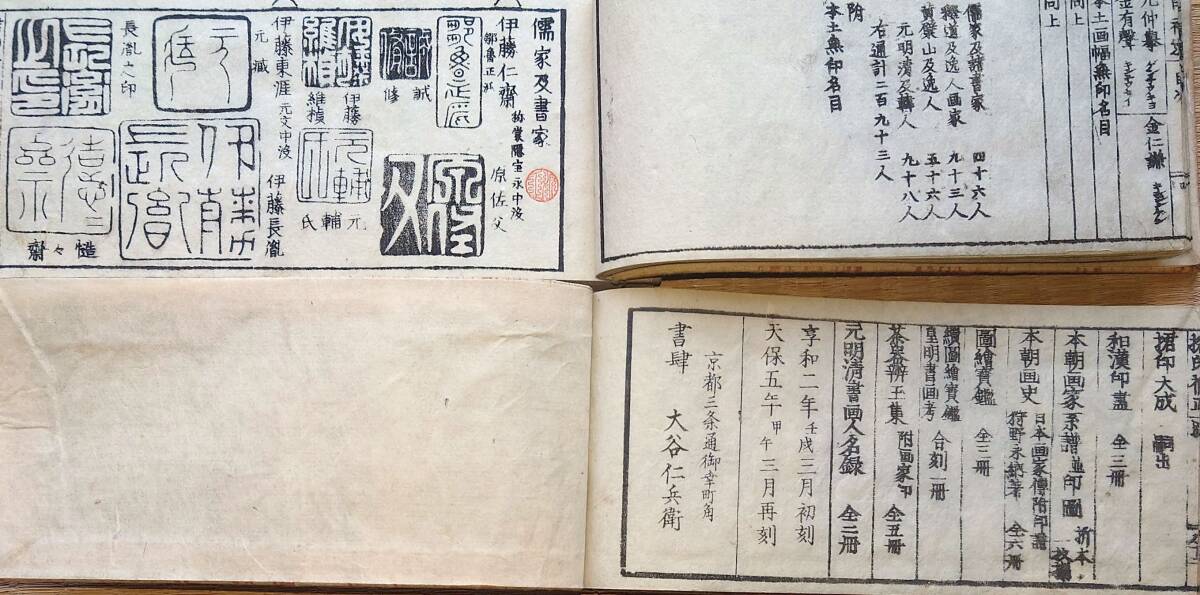 元仲擧
金有聲
金仁謙
同上
本土画幅無印名目
同上
儒家及諸書家 四十六人
釋道及逸人画家 九十三人
黄檗山及逸人 五十六人
元明清及韓人 九十八人
右通計二百九十三人
附
本土無印名目
儒家及書家
伊藤仁齋
鄒魯正派
原佐父
誠
修
伊藤
維楨
元輔氏
伊藤東涯 元文中沒
伊藤長胤
元藏
長胤之印
慥々齋
捃印大成 嗣出
和漢印盡 全三冊
本朝画家系譜並印圖 折本
本朝画史 日本画家傳附印譜
狩野永納著 全六冊
圖繪寶鑑 全三冊
續圖繪寶鑑
皇明書画考 合刻一冊
附画家印 全五冊
元明清書画人名録 全二冊
享和二年壬戌三月初刻
天保五年甲午三月再刻
京都三条通御幸町角
書肆 大谷仁兵衛